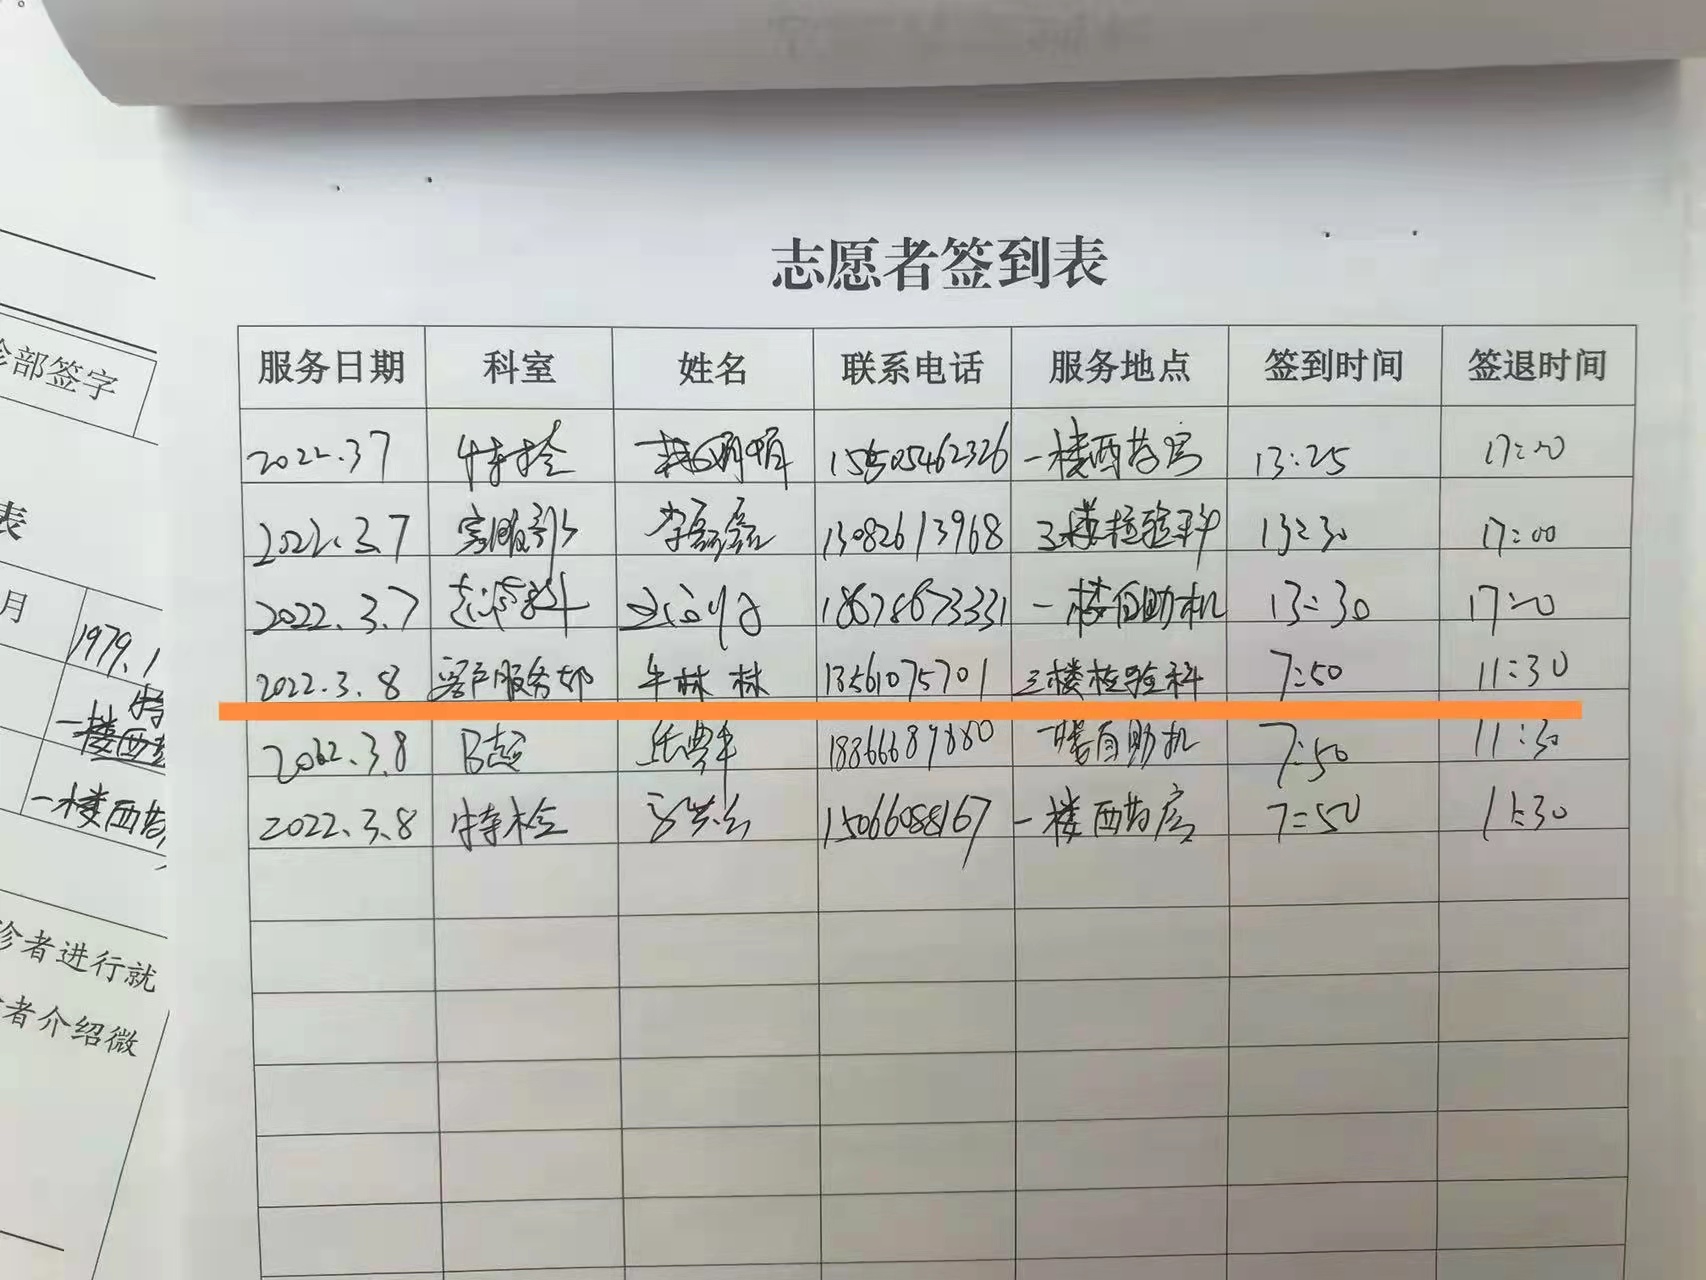 志愿者签到表
服务日期 科室 姓名 联系电话 服务地点 签到时间 签退时间
2022.3.7 特检 15505462326 一楼西药房 13:25 17:00
2022.3.7 客服部 李磊磊 13082613968 三楼检验科 13:30 17:00
2022.3.7 18678673331 一楼自助机 13:30 17:00
2022.3.8 客户服务部 牛林林 13561075701 三楼检验科 7:50 11:30
2022.3.8 B超 18366689880 一楼自助机 7:50 11:30
2022.3.8 特检 15066088167 一楼西药房 7:50 11:30
诊部签字
表
月 1979.1
特
一楼西药
一楼西药
诊者进行就
者介绍微